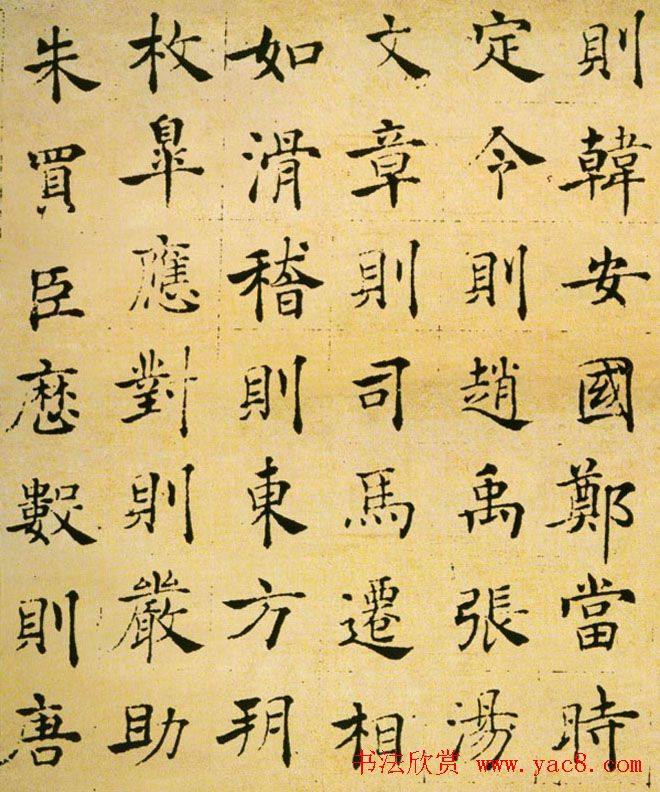 則韓安國鄭當時
定令則趙禹張湯
文章則司馬遷相
如滑稽則東方朔
枚臯應對則嚴助
朱買臣歷數則唐
书法欣赏 www.yac8.com